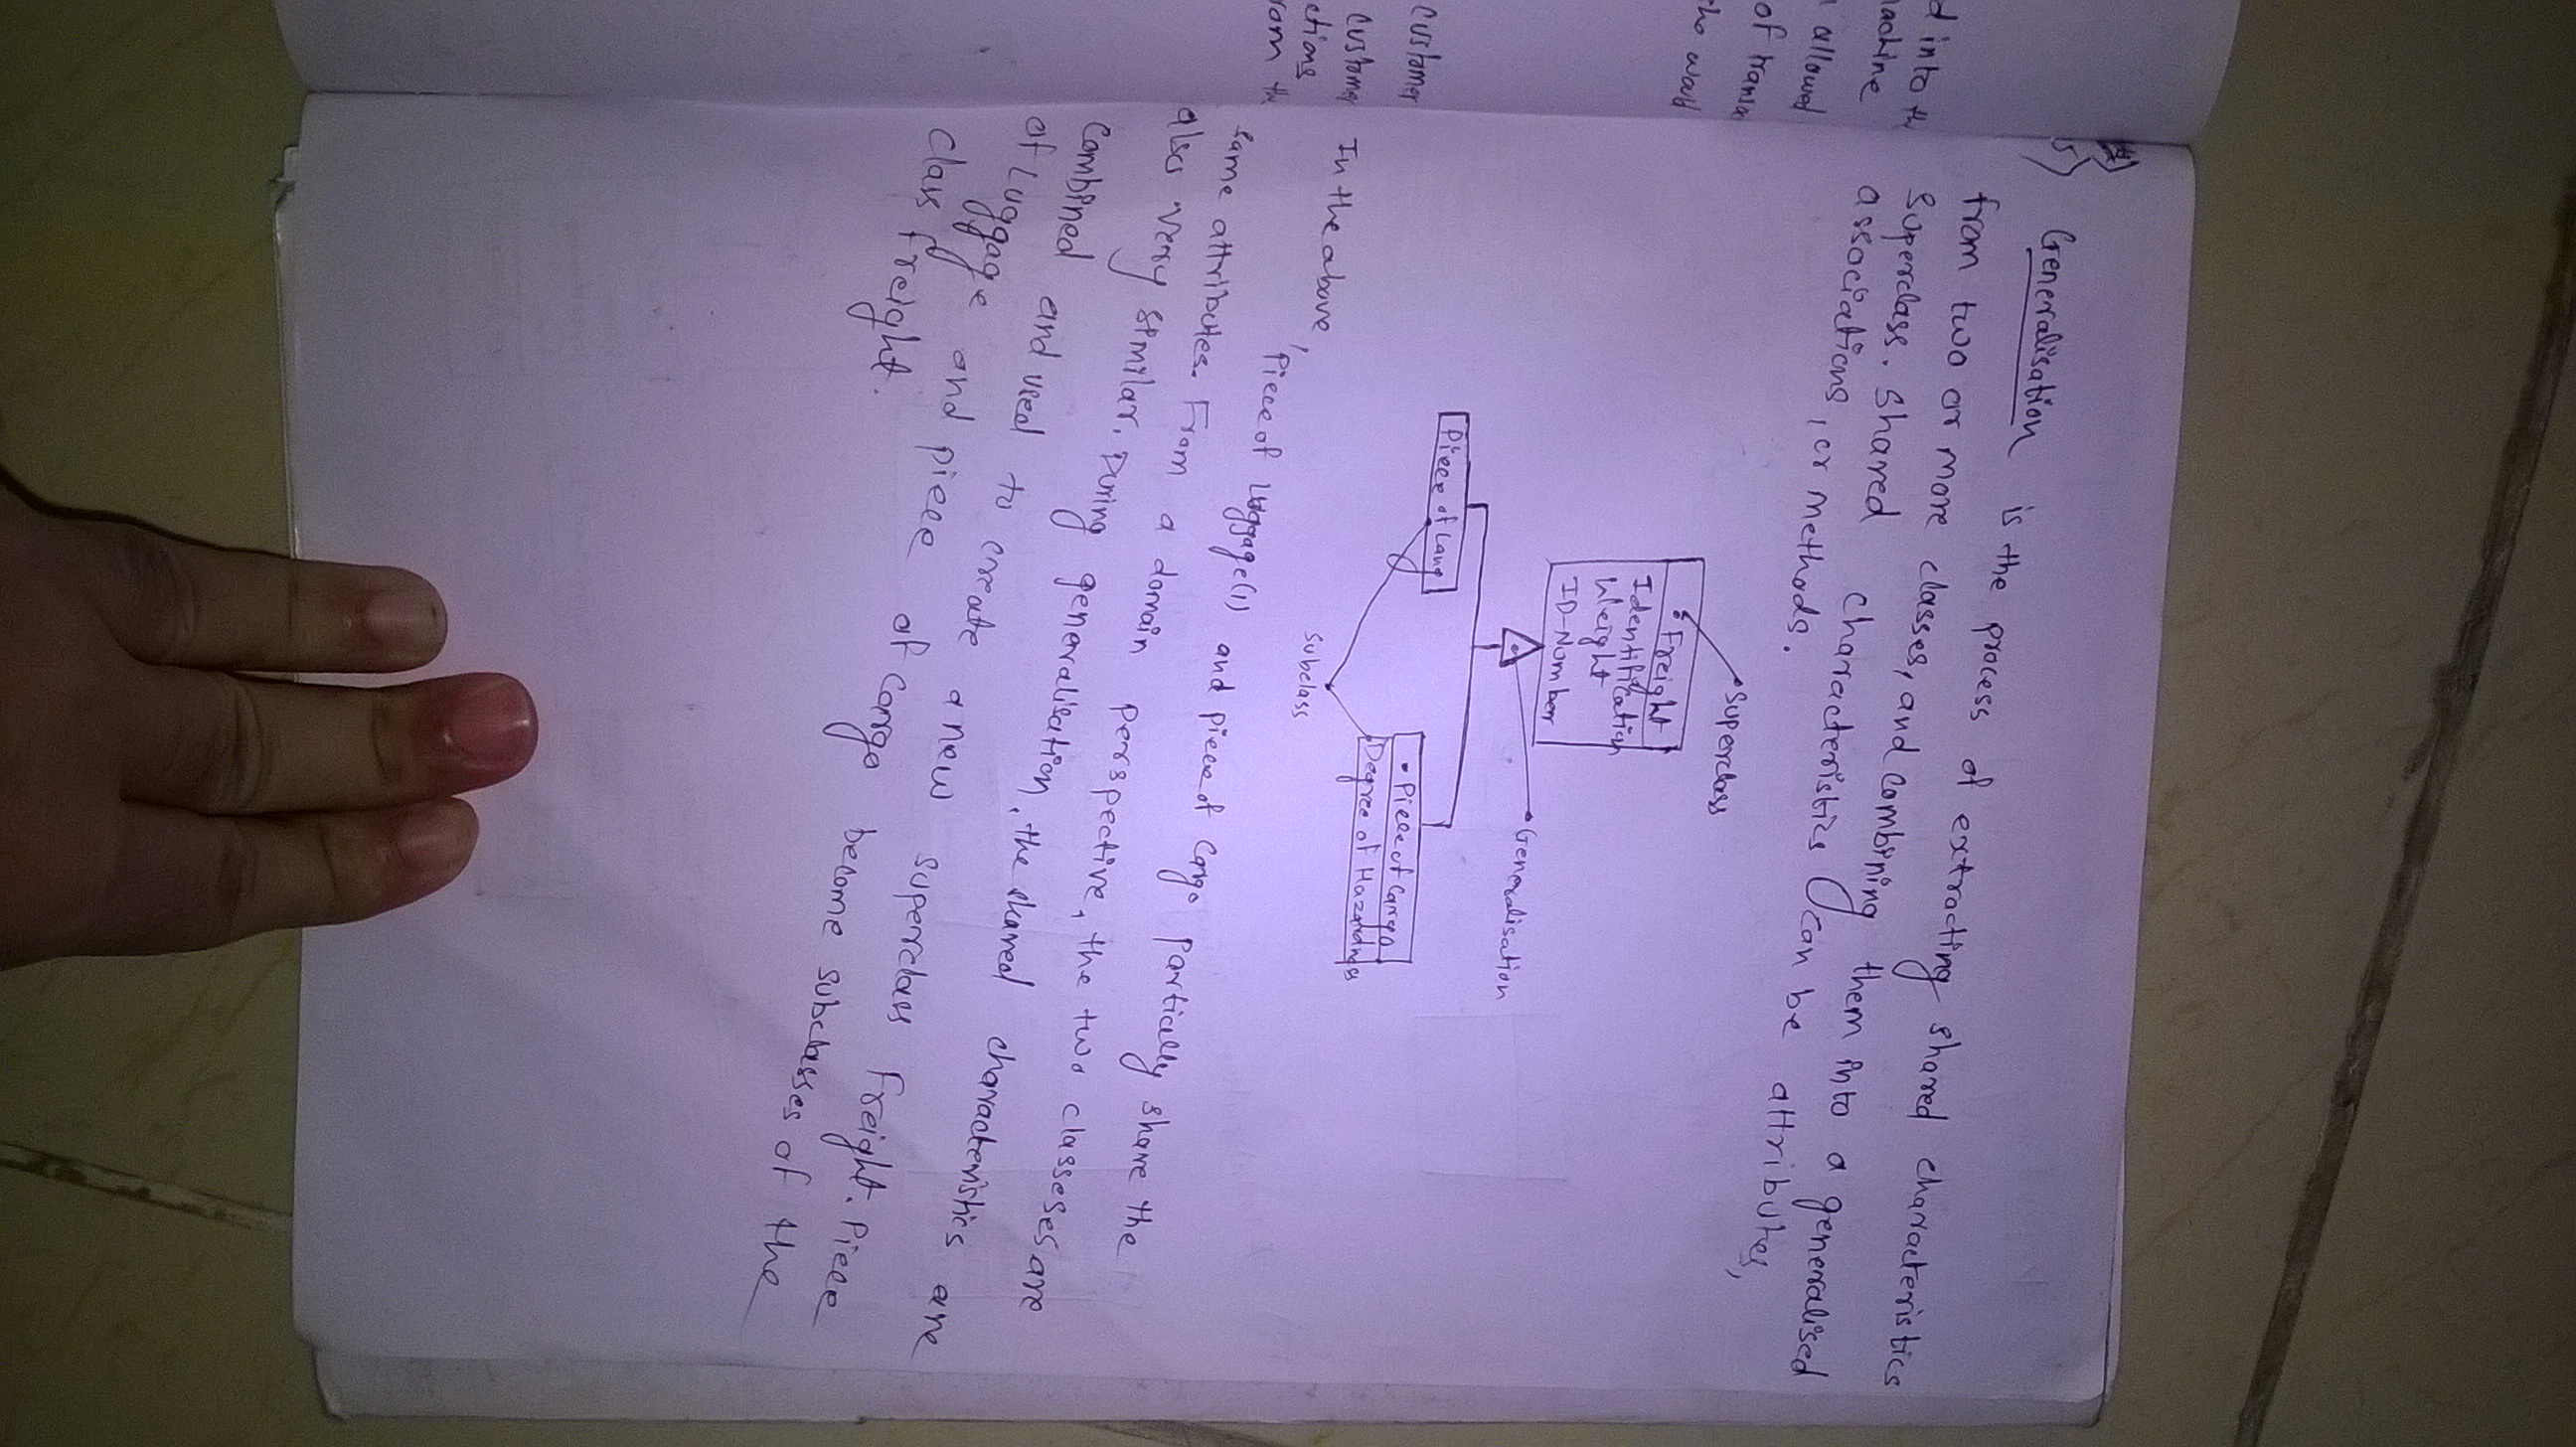 d into th
achine
allowed
of transa
cho
customer
customer
ctions
rom the
5) Generalisation is the process of extracting shared characteristics
from two or more classes, and combining them into a generalised
superclass. Shared characteristics can be attributes,
associations, or methods.
Superclass
Freight
Identification
Weight
ID-Number
Generalisation
Piece of
Piece of Cargo
Degree of
Subclass
In the above, piece of Luggage(1) and piece of Cargo partically share the
same attributes. From a domain perspective, the two classeses are
also very similar. During generalisation, the shared characteristics are
Combined and used to create a new superclass Freight. Piece
of Luggage and piece of Cargo become subclasses of the
class freight.